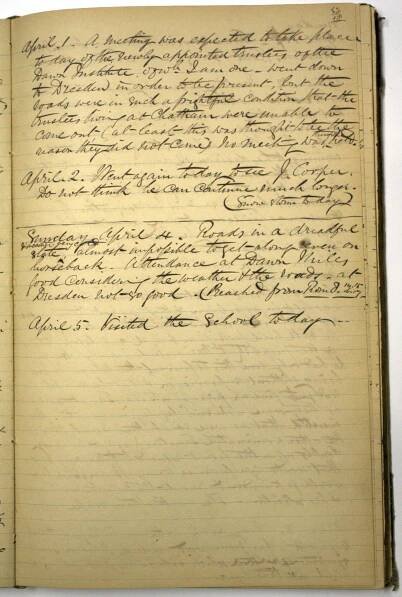 April 1. A meeting was expected to take place
to day of the newly appointed trustees of the
Dawn Institute, of wh. I am one - went down
to Dresden in order to be present, but the
roads were in such a frightful condition that the
trustees living at Chatham were unable to
come out (at least this was thought to be the
reason they did not come) No meeting was held.
April 2. Went again to day to see J. Cooper.
Do not think he can continue much longer.
(Snow storm to day)
Sunday April 4. Roads in a dreadful
state, almost impossible to get along even on
horseback. Attendance at Dawn Mills
good considering the weather & the roads - at
Dresden not so good. (Preached from Rom. 8.
April 5. Visited the School to day -